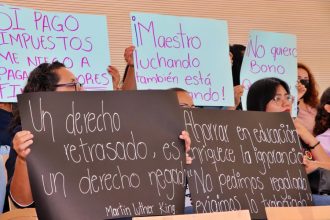 SI PAGO
IMPUESTOS
ME NIEGO A
PAGAR
¡Maestro
luchando
también está
No quiero
Bono
Un derecho
retrasado, es
un derecho
Martin Luther King
Ahorrar en educación
enriquece la ignorancia
No pedimos regalado
exigimos lo